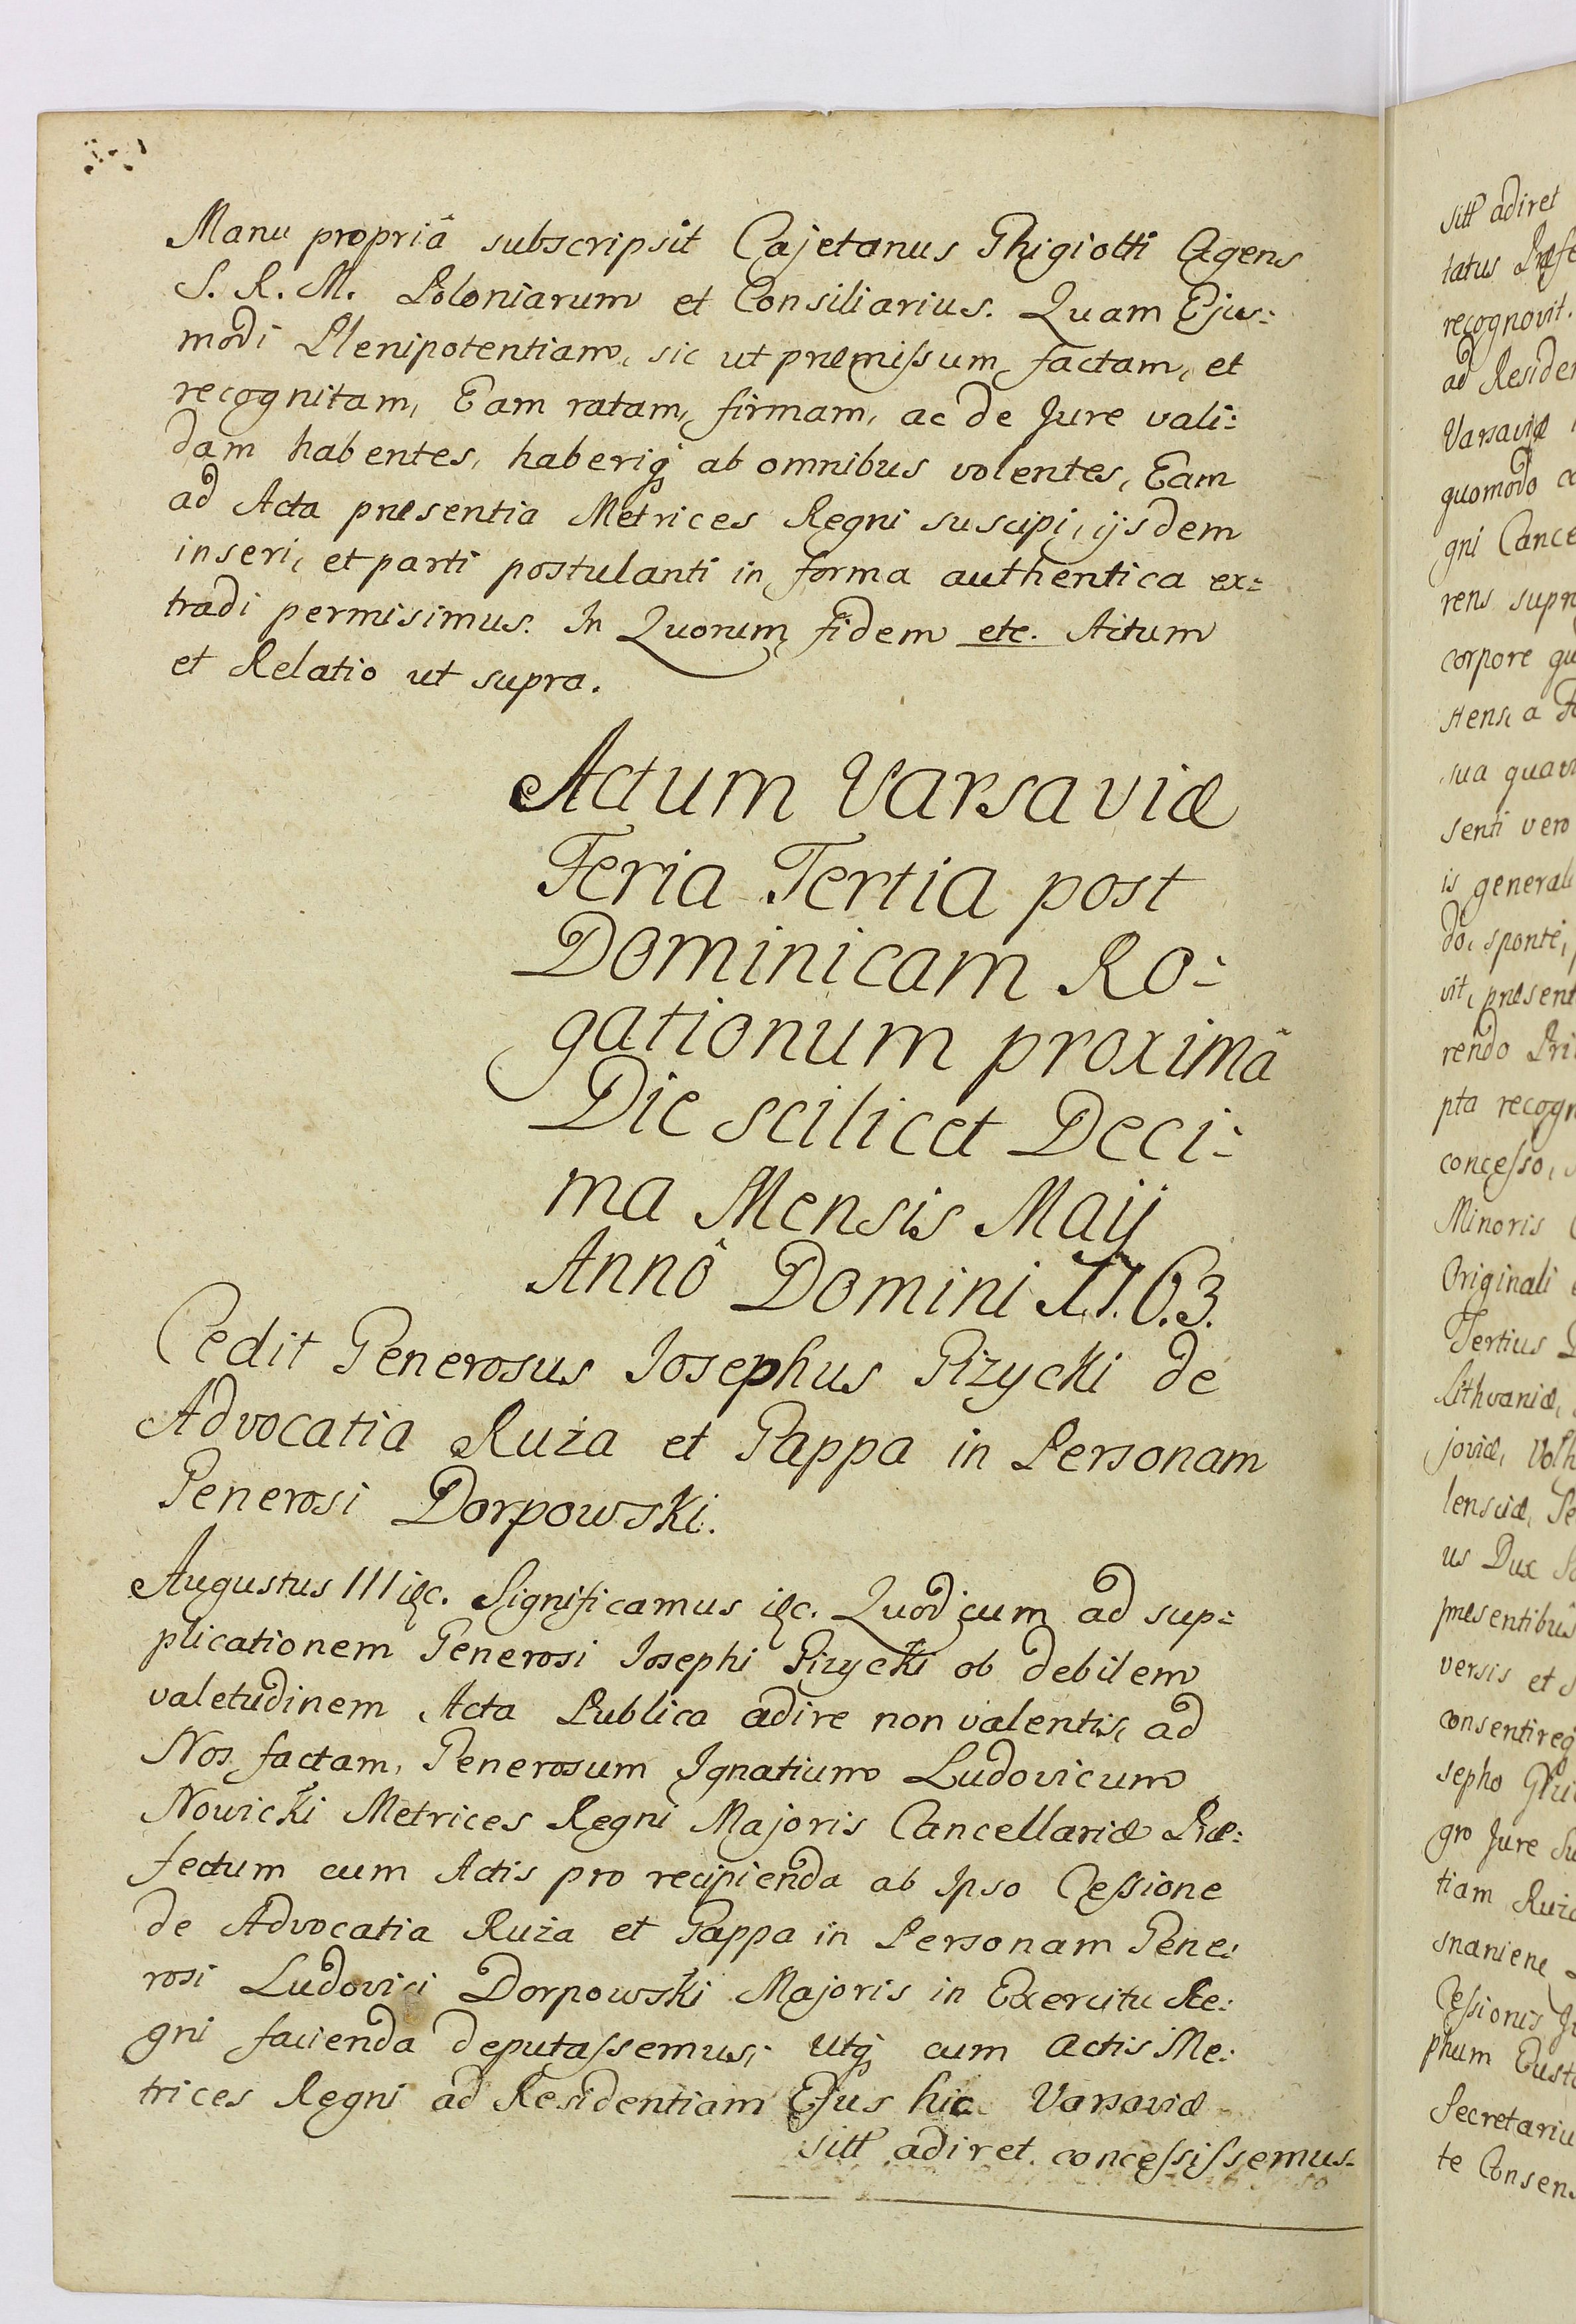 Manu propriâ subscripsit Cajetanus Ghigiotti Agens
S. R. M. Poloniarum et Consiliarius. Quam Ejus:
modi Plenipotentiam, sic ut præmissum factam, et
recognitam, Eam ratam, firmam, ac de Jure vali:
dam habentes, haberiq ab omnibus volentes, Eam
ad Acta præsentia Metrices Regni suscipi, ijsdem
inseri, et parti postulanti in forma authentica ex:
tradi permisimus. In Quorum fidem etc. Actum
et Relatio ut supra.
Actum Varsaviæ
Feria Tertia post
Dominicam Ro:
gationum proximâ
Die scilicet Deci:
ma Mensis Maij
Annô Domini 1763.
Cedit Generosus Josephus Gizycki de
Advocatia Ruża et Gappa in Personam
Generosi Dorpowski.
Augustus III etc. Significamus etc. Quod cum ad sup:
plicationem Generosi Josephi Gizycki ob debilem
valetudinem Acta Publica adire non valentis, ad
Nos factam, Generosum Ignatium Ludovicum
Nowicki Metrices Regni Majoris Cancellariæ Præ:
fectum cum Actis pro recipienda ab Ipso Cessione
de Advocatia Ruża et Gappa in Personam Gene:
rosi Ludovici Dorpowski Majoris in Exercitu Re:
gni facienda deputassemus, utq cum Actis Me:
trices Regni ad Residentiam Ejus hic Varsaviæ
sitt adiret concessissemus
sitt adiret
tatus Præfe
recognovit.
ad Reside
Varsaviæ
quomodo
gni Cance
rens supr
corpore qu
stens, a
sua quav
senti vero
is general
do, sponte,
vit, præsent
rendo Pri
pta recogn
concesso,
Minoris
Originali
Tertius
Lithvaniæ,
joviæ, Volh
lensciæ,
us Dux
præsentibus
versis et
consentireq
sepho
gro Jure
tiam Ruża
snaniene
Cessionis
phum Eust
Secretariu
te Consens